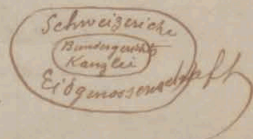 Schweizeriche
Bundergerichts
Kanzlei
Eidgenossenschaft